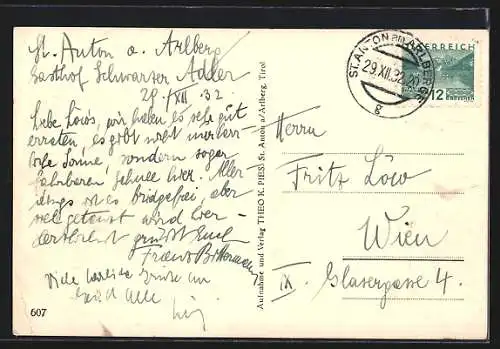 St. Anton a. Arlberg
Gasthof Schwarzer Adler
29./XII. 32.
Liebe Löws, wir haben es sehr gut
erraten, es gibt nicht nur herr-
liche Sonne, sondern sogar
fahrbaren Schnee hier. Aller-
dings ist es bridgefrei, aber
viel getanzt wird hier
grüßt Euch
Franz
Viele Grüße an
Euch alle
607
Aufnahme und Verlag THEO K. PIESS, St. Anton a/Arlberg, Tirol
ST. ANTON am ARLBERG
29.XII.32.20
g
ÖSTERREICH
12
GROSCHEN
Herrn
Fritz Löw
Wien
IX. Glasergasse 4.